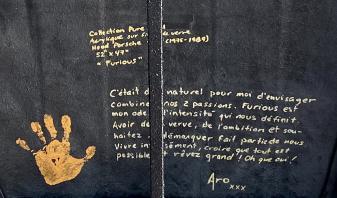 Collection Pure verve
Acrylique sur
Hood Porsche (1975-1989)
52" x 47"
"Furious"
C'était naturel pour moi d'envisager
combiner nos 2 passions. Furious est
mon ode l'intensité qui nous définit.
Avoir de verve, de l'ambition et sou-
haitez démarquer fait partie de nous
Vivre intensément, croire que tout est
possible et rêvez grand! Oh que oui!
Aro
xxx